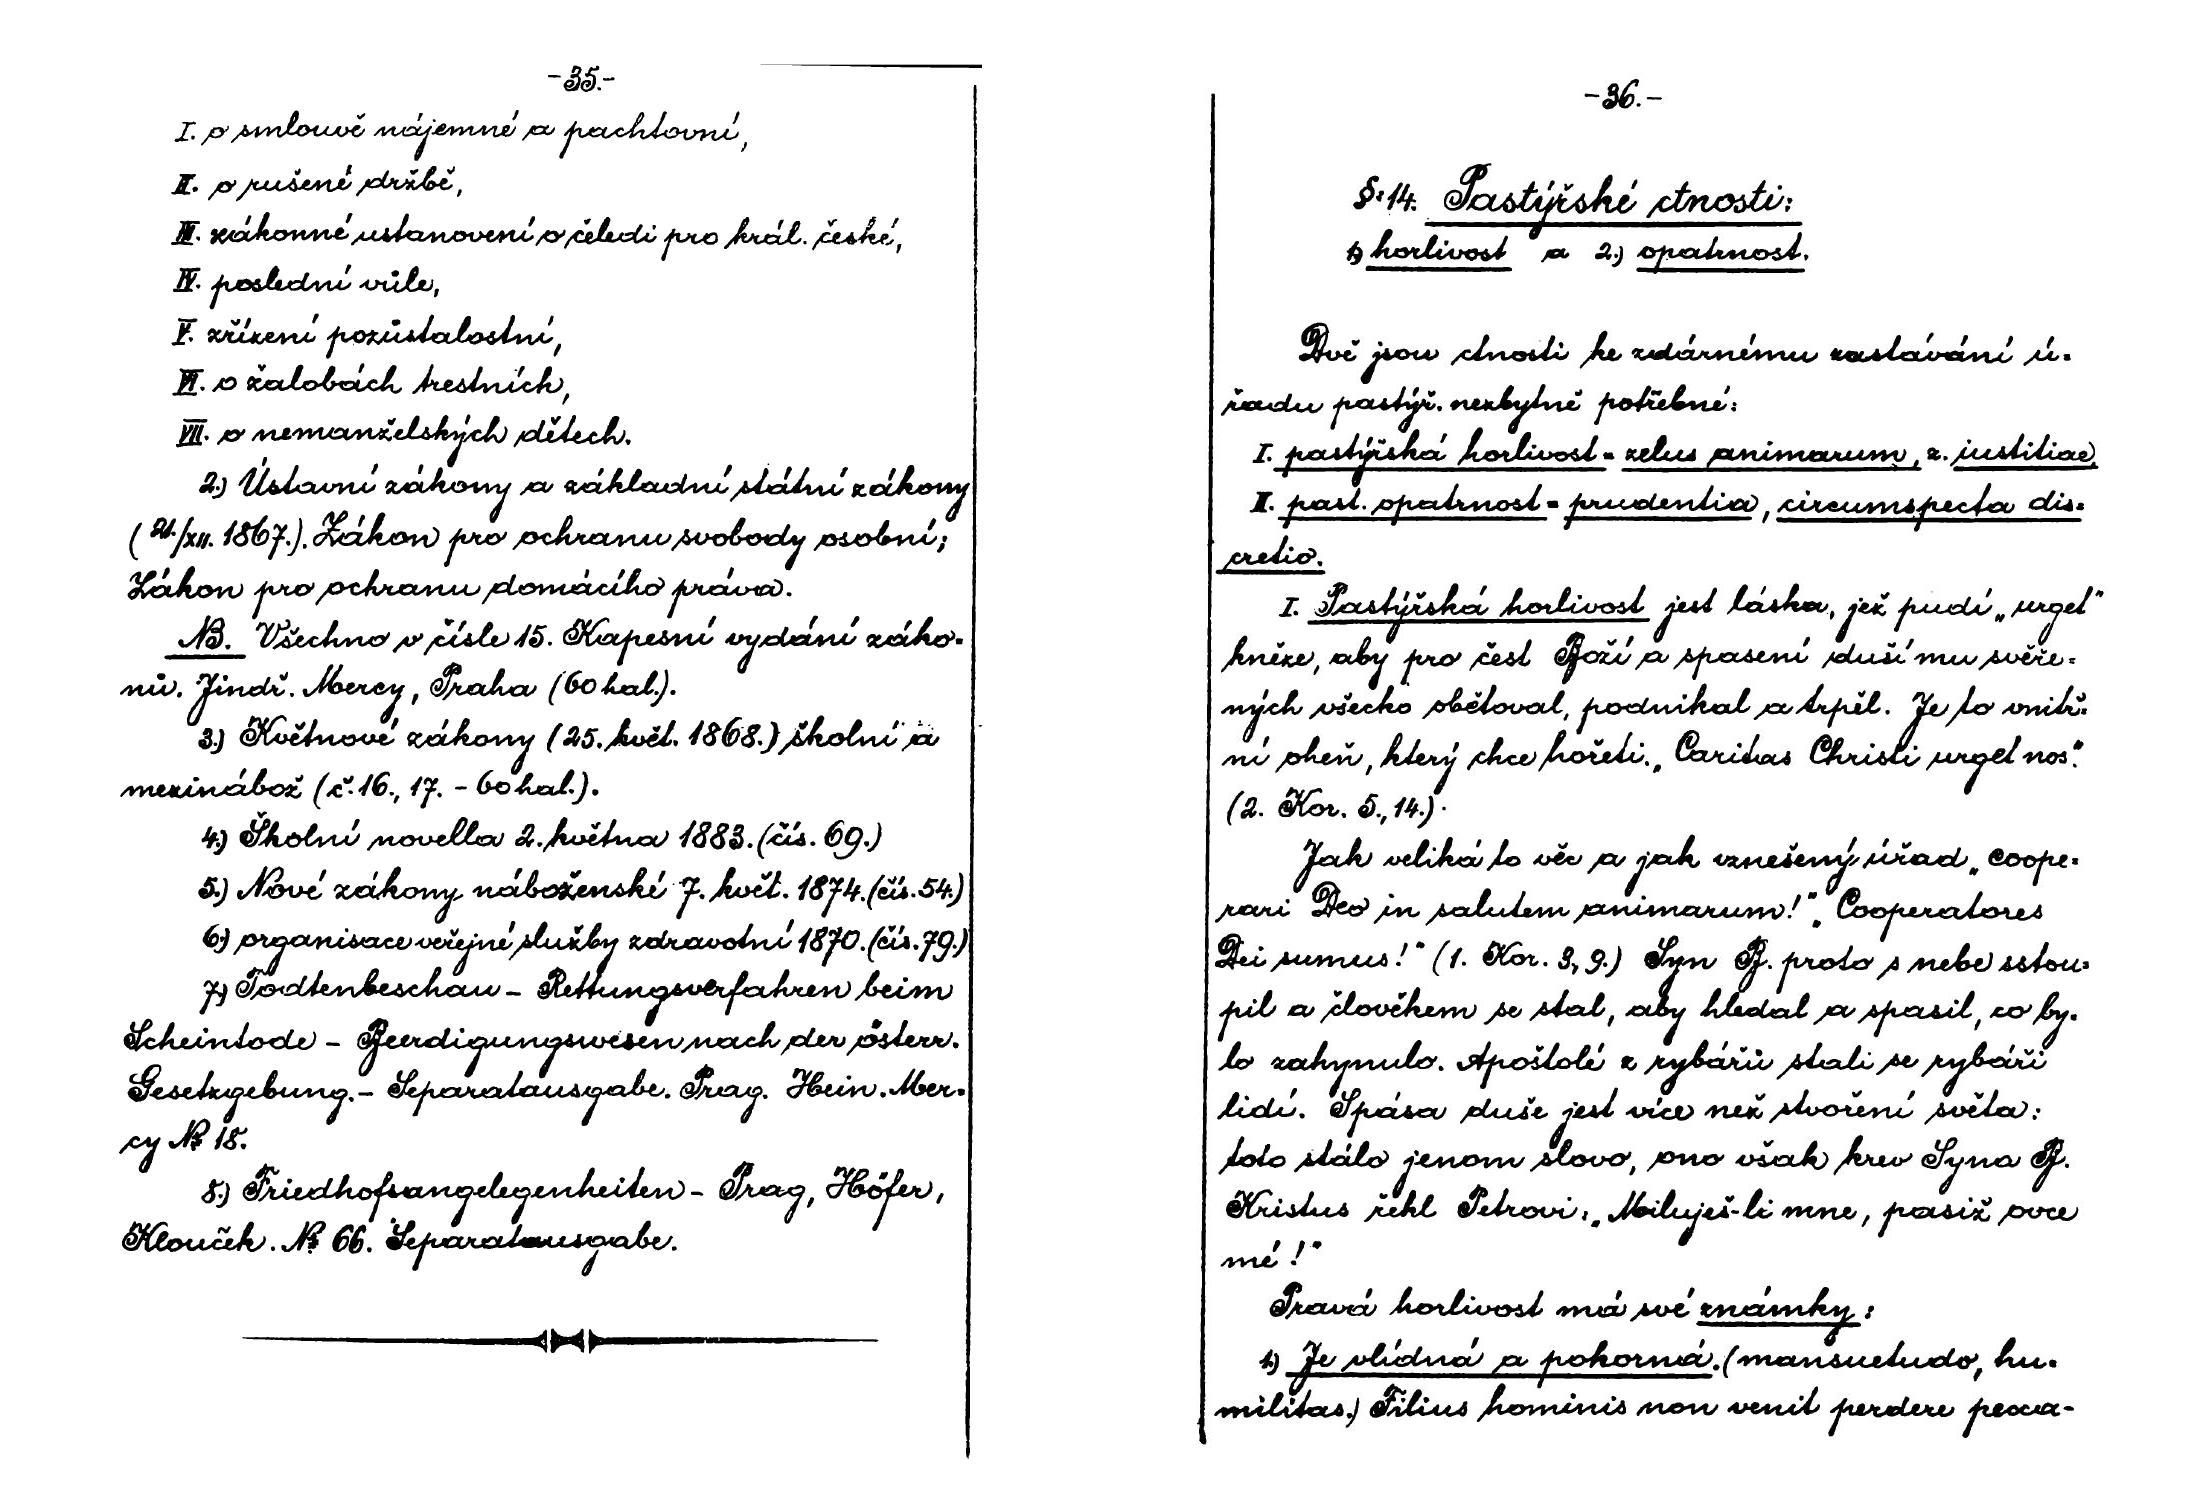 -35.-
I. o smlouvě nájemné a pachtovní,
II. o rušené držbě,
III. zákonné ustanovení o čeledi pro král. české,
IV. poslední vůle,
V. zřízení pozůstalostní,
VI. o žalobách trestních,
VII. o nemanželských dětech.
2.) Ústavní zákony a základní státní zákony
(21./XII. 1867.). Zákon pro ochranu svobody osobní;
Zákon pro ochranu domácího práva.
NB. Všechno v čísle 15. Kapesní vydání záko-
nů. Jindř. Mercy, Praha (60 hal.).
3.) Květnové zákony (25. květ. 1868.) školní a
mezinábož (č. 16., 17. - 60 hal.).
4.) Školní novella 2. května 1883. (čís. 69.)
5.) Nové zákony náboženské 7. květ. 1874. (čís. 54.)
6.) organisace veřejné služby zdravotní 1870. (čís. 79.)
7.) Todtenbeschau - Rettungsverfahren beim
Scheintode - Beerdigungswesen nach der österr.
Gesetzgebung. - Separatausgabe. Prag. Hein. Mer-
cy No 18.
8.) Friedhofsangelegenheiten - Prag, Höfer,
Klouček. No 66. Separatausgabe.
-36.-
§: 14. Pastýřské ctnosti:
1.) horlivost a 2.) opatrnost.
Dvě jsou ctnosti ke zdárnému zastávání ú-
řadu pastýř. nezbytně potřebné:
I. pastýřská horlivost = zelus animarum, z. iustitiae,
II. past. opatrnost = prudentia, circumspecta dis-
cretio.
I. Pastýřská horlivost jest láska, jež pudí „urget"
kněze, aby pro čest Boží a spasení duší mu svěře-
ných všecko obětoval, podnikal a trpěl. Je to vnitř-
ní oheň, který chce hořeti. „Caritas Christi urget nos."
(2. Kor. 5., 14.).
Jak veliká to věc a jak vznešený úřad „coope-
rari Deo in salutem animarum!" „Cooperatores
Dei sumus!" (1. Kor. 3, 9.) Syn B. proto s nebe sstou-
pil a člověkem se stal, aby hledal a spasil, co by-
lo zahynulo. Apoštolé z rybářů stali se rybáři
lidí. Spása duše jest více než stvoření světa:
toto stálo jenom slovo, ono však krev Syna B.
Kristus řekl Petrovi: „Miluješ-li mne, pasiž ovce
mé!"
Pravá horlivost má své známky:
1.) Je vlídná a pokorná. (mansuetudo, hu-
militas.) Filius hominis non venit perdere pecca-